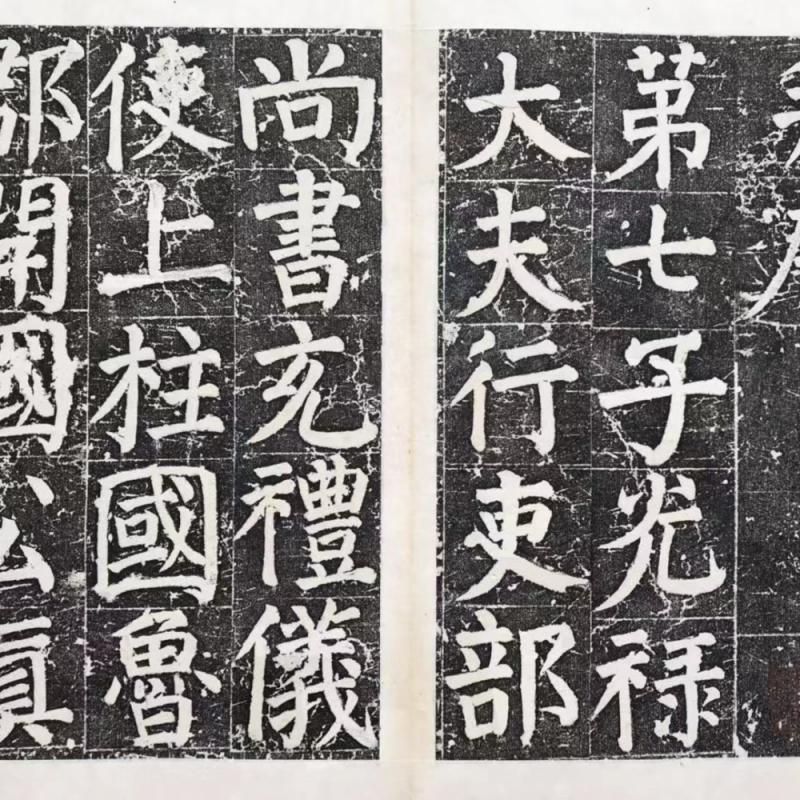 苐七子光禄
大夫行吏部
尚書充禮儀
使上柱國魯
郡開國公真